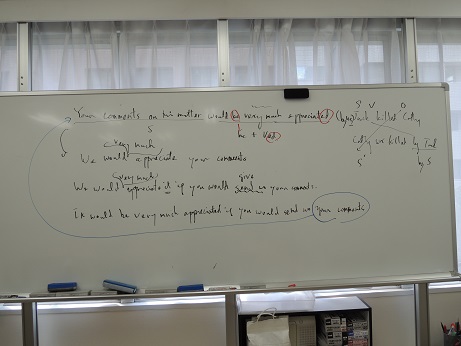 Your comments on this matter would be very much appreciated (by
S V O
killed Cathy
S
be + Ved
Cathy was killed by Ted
S by S
very much
We would appreciate your comments
very much give
We would appreciate it if you would send us your comments.
It would be very much appreciated if you would send us your comments